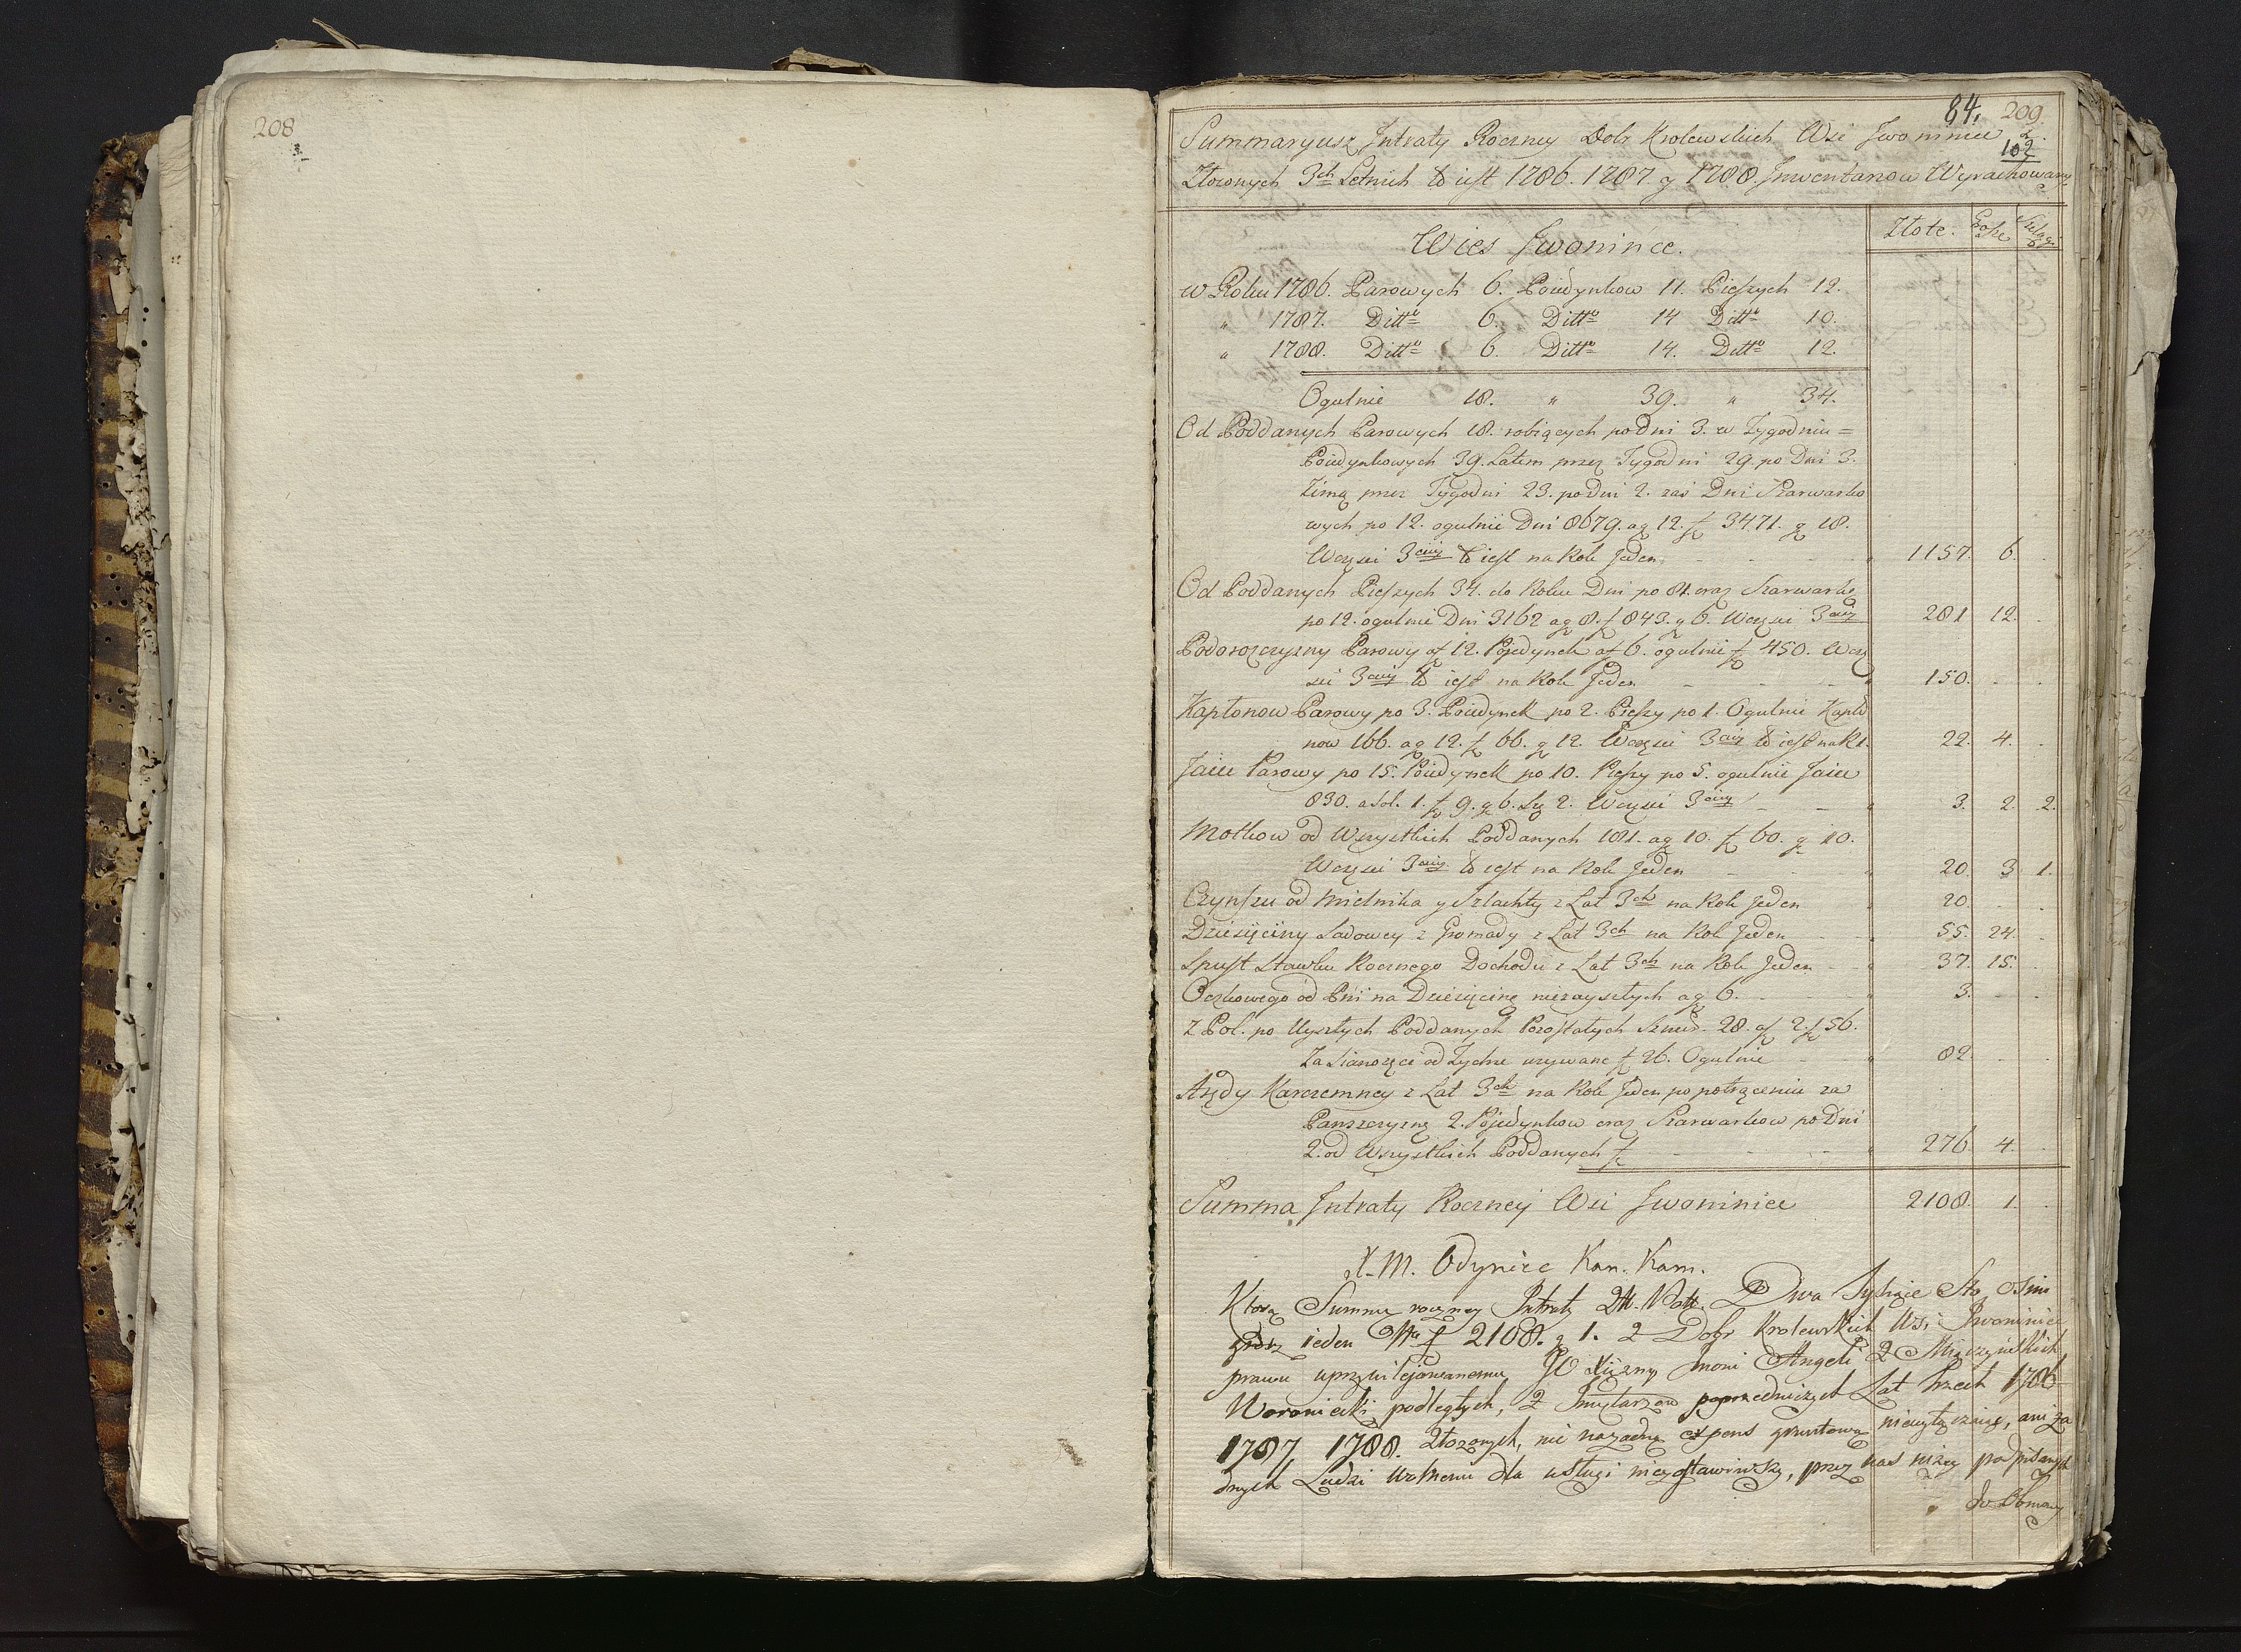 208
84. 209.
Summaryusz Jntraty Roczney Dobr Krolewskich Wsi Jwonince z
102
Złozonych 3ch Letnich to iest 1786. 1787. y 1788. Jnwentarzow Wyrachowany
Złote. Grosze Szelągi
Wies Jwonince.
w Roku 1786. Parowych 6. Poiedynkow 11. Pieszych 12.
" 1787. Ditto 6. Ditto 14 Ditto 10.
" 1788. Ditto 6. Ditto 14. Ditto 12.
Ogulnie 18. " 39. " 34.
Od Poddanych Parowych 18. robiących po Dni 3. w Tygodniu =
Poiedynkowych 39. Latem przez Tygodni 29. po Dni 3.
Zimą przez Tygodni 23. po Dni 2. zaś Dni Szarwarko
wych po 12. ogulnie Dni 8679. a g 12. f 3471. g 18.
Części 3ciey to iest na Rok Jeden - - - " 1157. 6. .
Od Poddanych Pieszych 34. do Roku Dni po 81. oraz Szarwarkų
po 12. ogulnie Dni 3162 a g 8. f 843. g 6. Części 3ciey 281 12. .
Podorozczyzny Parowy a f 12. Pojedynek a f 6. ogulnie f 450. Czę
sci 3ciey to iest na Rok Jeden - - - " 150. - .
Kapłonow Parowy po 3. Poiedynek po 2. Pieszy po 1. Ogulnie Kapło
now 166. a g 12. f 66. g 12. Części 3ciey to iest na R 1. 22. 4. .
Jaiec Parowy po 15. Poiedynek po 10. Pieszy po 5. ogulnie Jaiec
830. a szl. 1. f 9. g 6. Sz 2. Części 3ciey - - " 3. 2. 2.
Motkow od Wszystkich Poddanych 181. a g 10. f 60. g 10.
Części 3ciey to iest na Rok Jeden - - - " 20. 3 1.
Czynszu od Mielnika y Szlachty z Lat 3ch na Rok Jeden " 20. - .
Dziesięciny Sadowey z Gromady z Lat 3ch na Rok Jeden - " 55. 24. .
Spust Stawku Rocznego Dochodu z Lat 3ch na Rok Jeden - " 37. 15. .
Oczkowego od Pni na Dziesięcinę niezayszłych a g 6. - - " 3. - .
Z Pol. po Uyszłych Poddanych Pozostałych Sznur. 28. a f 2. f 56.
Za Sianozęci od Tychze uzywane f 26. Ogulnie - " 82. - .
Arędy Karczemney z Lat 3ch na Rok Jeden po potrąceniu za
Panszczyznę 2. Pojedynkow oraz Szarwarkow po Dni
2. od Wszystkich Poddanych f - - - " 276. 4. .
Summa Jntraty Roczney Wsi Jwonince " 2108. 1. .
X. M. Odyniec Kan. Kam.
Ktorą Summę roczney Intraty Dwa Tysiące Sto Osm
grosz ieden f 2108. g 1. z Dobr Krolewskich Wsi Jwonince
prawu uprzywilejowanemu Angeli z Miączyńskich
Woronieckiy podległych, z Inwętarzow poprzedniczych Lat trzech 1786
1787, 1788. złozonych, nie nazadną expens gruntową niewytrącaiąc, ani za
dnych Ludzi wolnemi dla usługi niezostawiwszy, przez nas nizey podpisanych
do